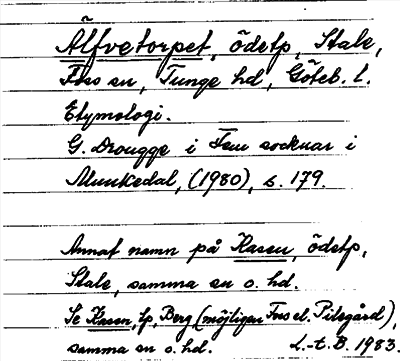 Älfvetorpet, ödetp, Stale,
Foss sn, Tunge hd, Göteb. l.
Etymologi.
G. Drougge i Fem socknar i
Munkedal, (1980), s. 179.
Annat namn på Kasen, ödetp,
Stale, samma sn o. hd.
Se Kasen, tp, Berg (möjligen Foss el. Pilegård),
samma sn o. hd. L.-t. B. 1983.